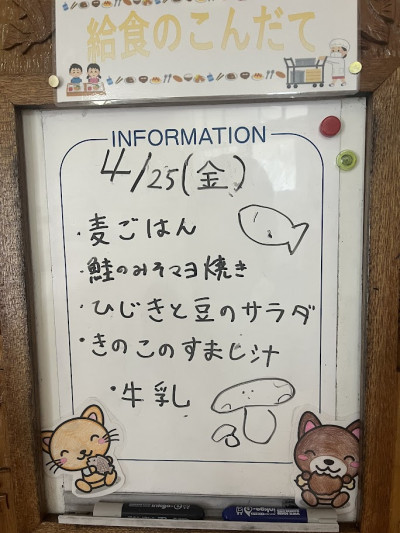 給食のこんだて
INFORMATION
4/25(金)
・麦ごはん
・鮭のみそマヨ焼き
・ひじきと豆のサラダ
・きのこのすまし汁
・牛乳